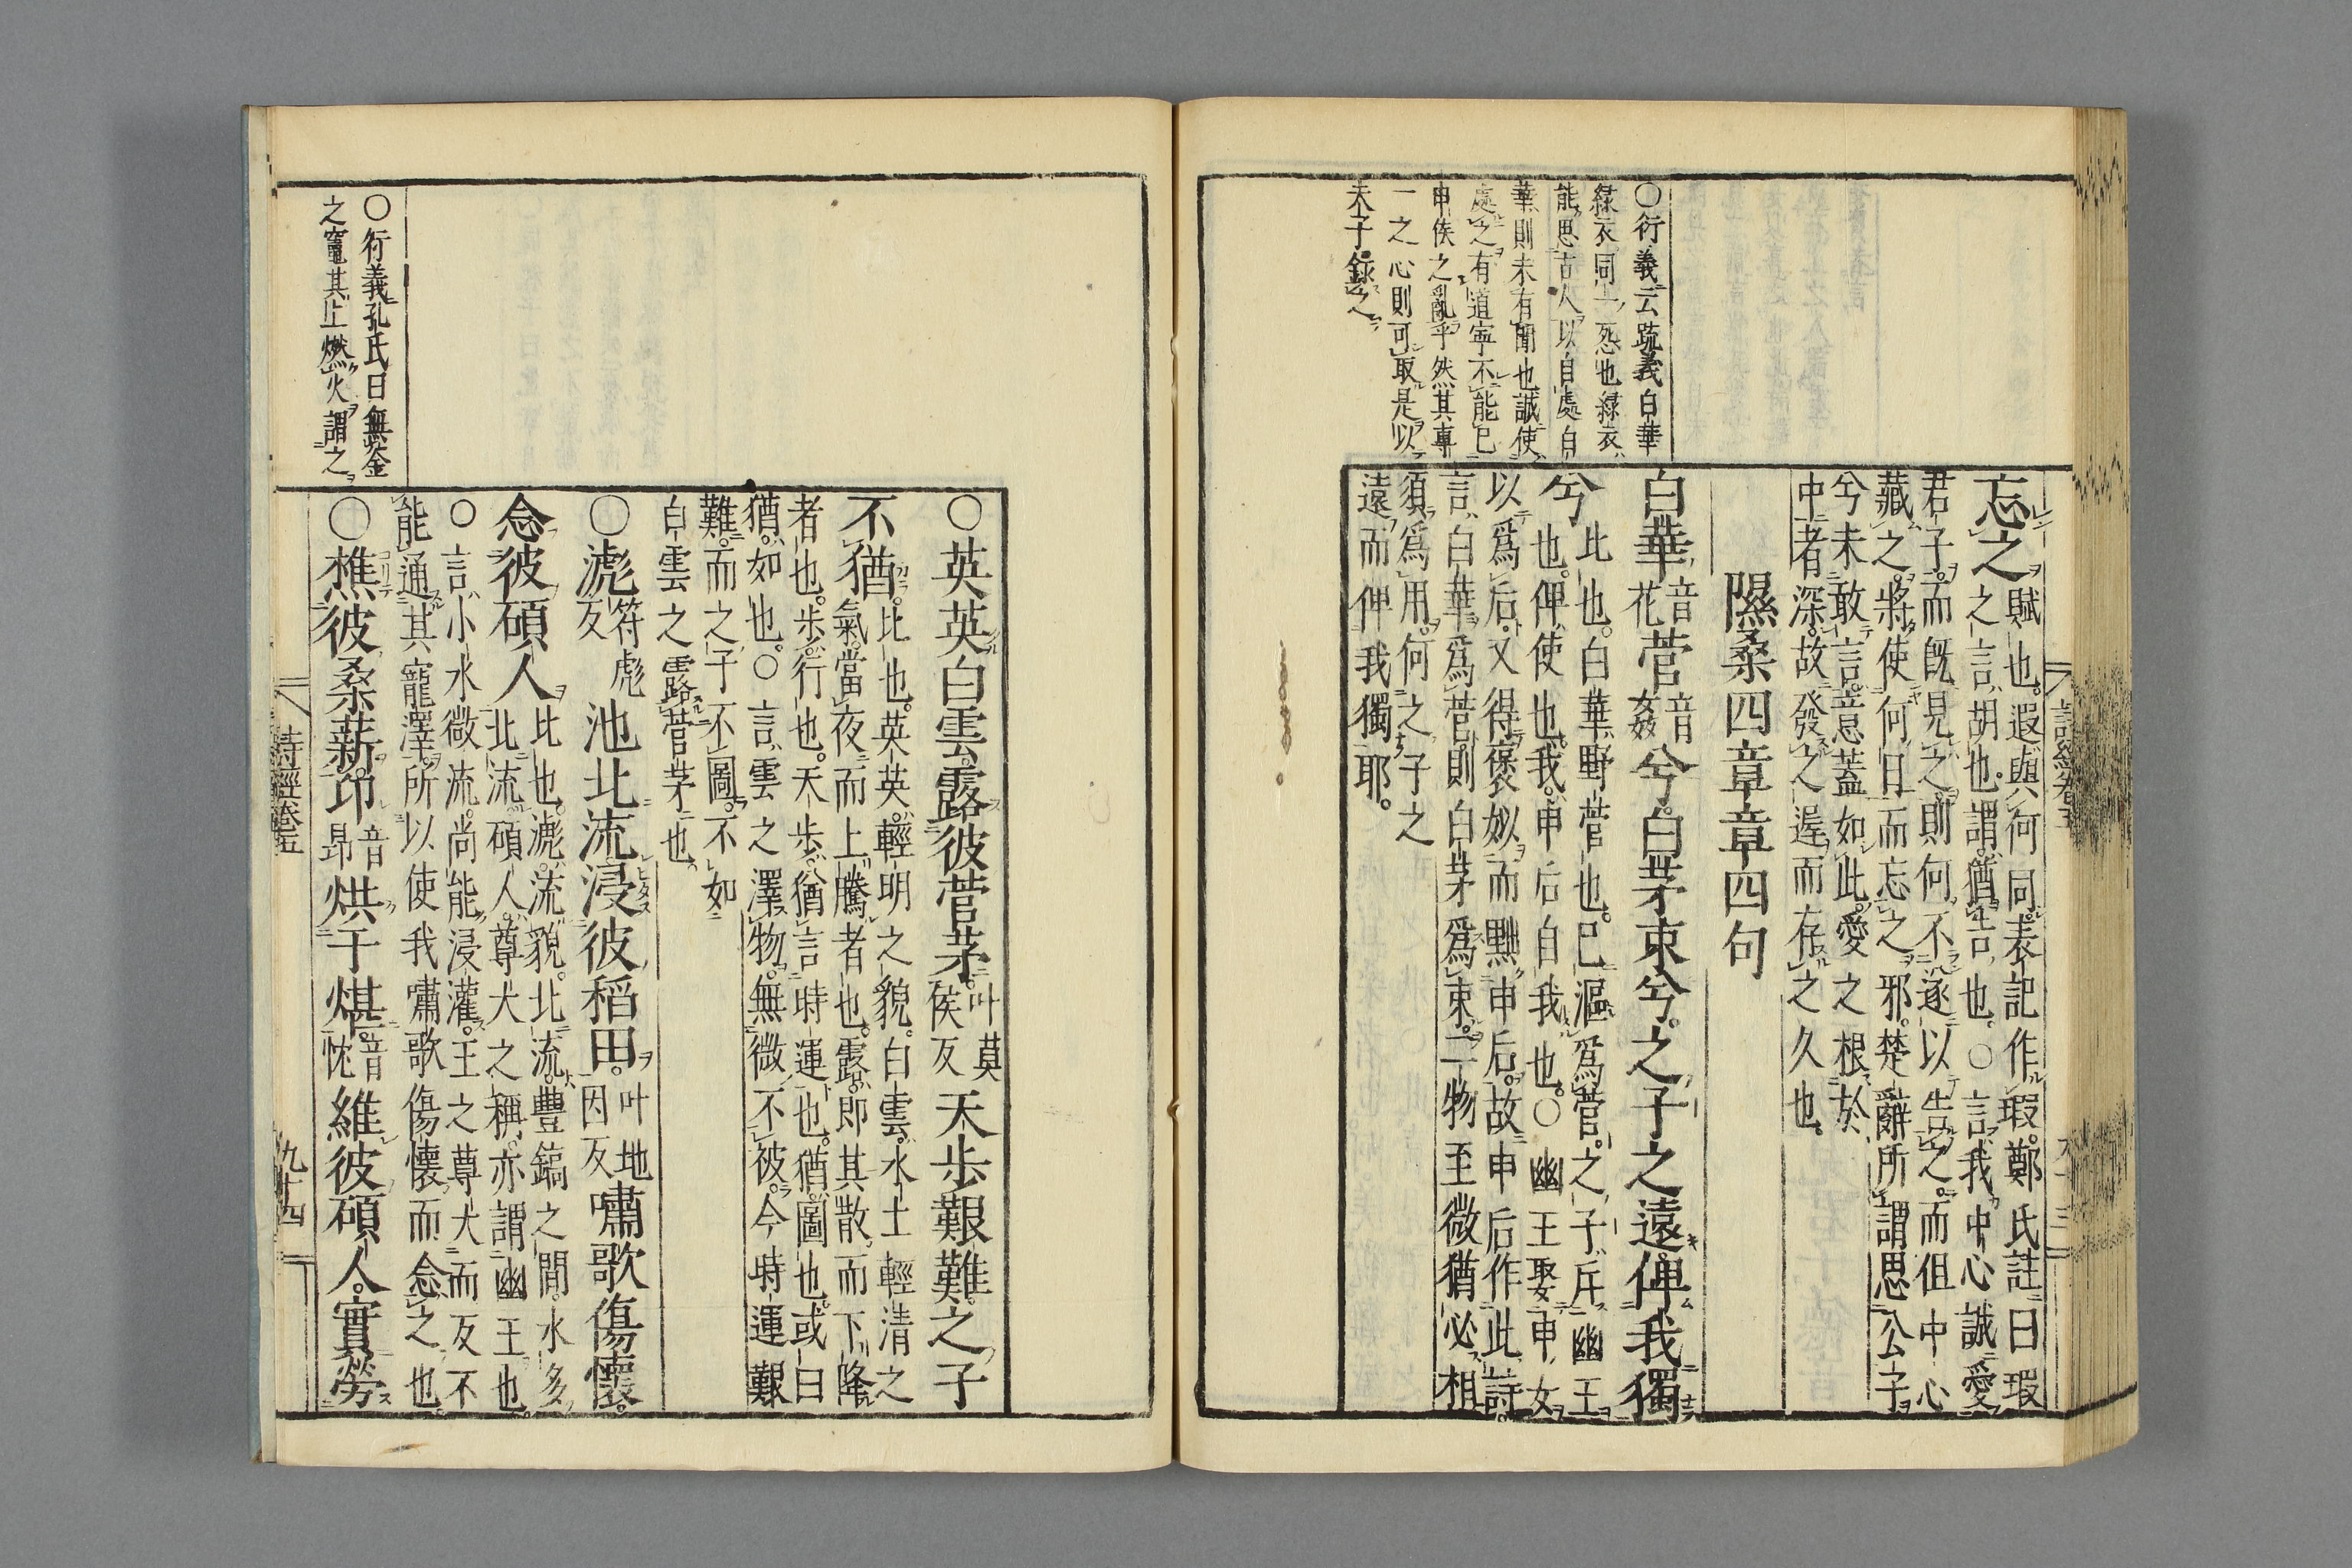 ○衍義云疏義白華
綠衣同一怨也綠衣
能思古人以自處白
華則未有聞也誠使
處之有道寧不能已
申侯之亂乎然其專
一之心則可取是以
夫子錄之
忘之賦也。遐與何同。表記作瑕。鄭氏註曰瑕
之言胡也。謂猶告也。○言我中心誠愛
君子。而既見之。則何不遂以告之。而但中心
藏之。將使何日而忘之邪。楚辭所謂思公子
兮未敢言。意蓋如此。愛之根於
中者深。故發之遲而存之久也。
隰桑四章章四句
白華音花菅音姦兮。白茅束兮。之子之遠俾我獨
兮比也。白華野菅也。已漚爲菅。之子斥幽王
也。俾使也。我申后自我也。○幽王娶申女
以爲后。又得褒姒而黜申后。故申后作此詩。
言白華爲菅則白茅爲束。二物至微猶必相
須爲用。何之子之
遠。而俾我獨耶。
○衍義孔氏曰無釜
之竈其上燃火謂之
○英英白雲露彼菅茅。叶莫侯反天步艱難。之子
不猶。比也。英英。輕明之貌。白雲。水土輕清之
氣。當夜而上騰者也。露。即其散而下降
者也。步。行也。天步。猶言時運也。猶。圖也。或曰
猶。如也。○言雲之澤物。無微不被。今時運艱
難。而之子不圖。不如
白雲之露菅茅也
○滮符彪反池北流浸彼稻田。叶地因反嘯歌傷懷。
念彼碩人比也。滮。流貌。北流。豐鎬之間。水多
北流碩人。尊大之稱。亦謂幽王也。
○言小水微流。尚能浸灌。王之尊大而反不
能通其寵澤。所以使我嘯歌傷懷而念之也
○樵彼桑薪卬音昂烘于煁。音忱維彼碩人。實勞
詩經卷五
九十四